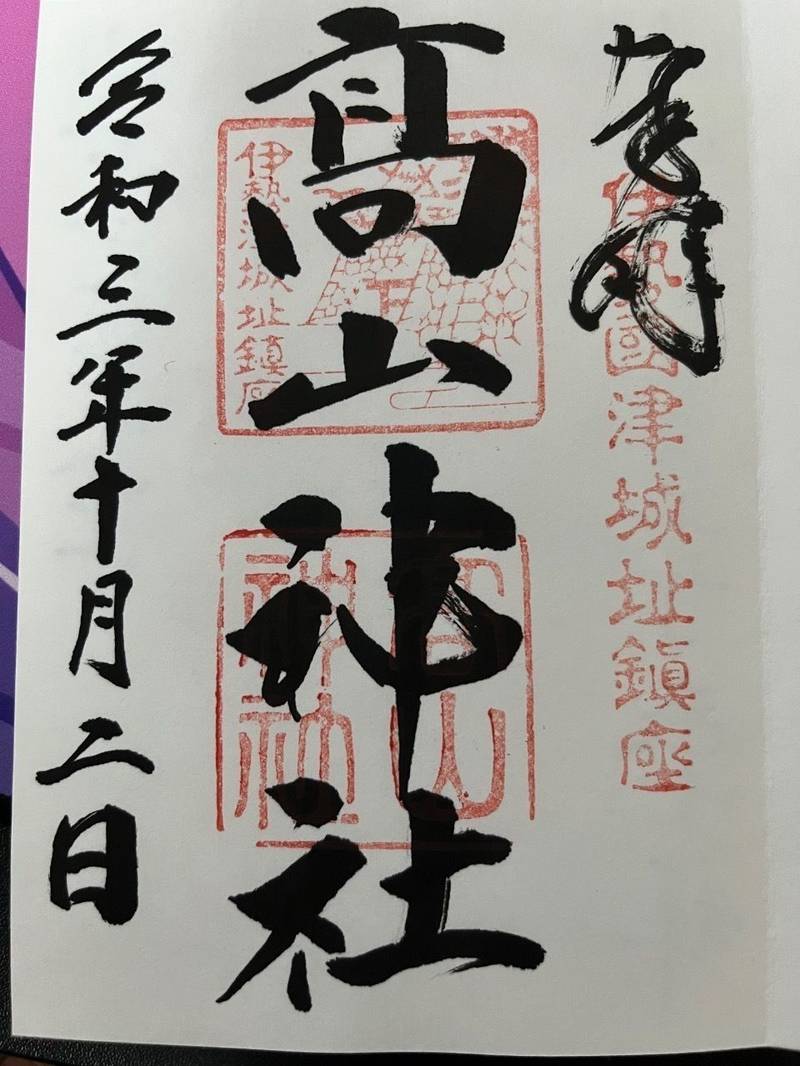 奉拝
伊勢國津城址鎮座
高山神社
伊勢津城址鎮座
高山神社
令和三年十月二日